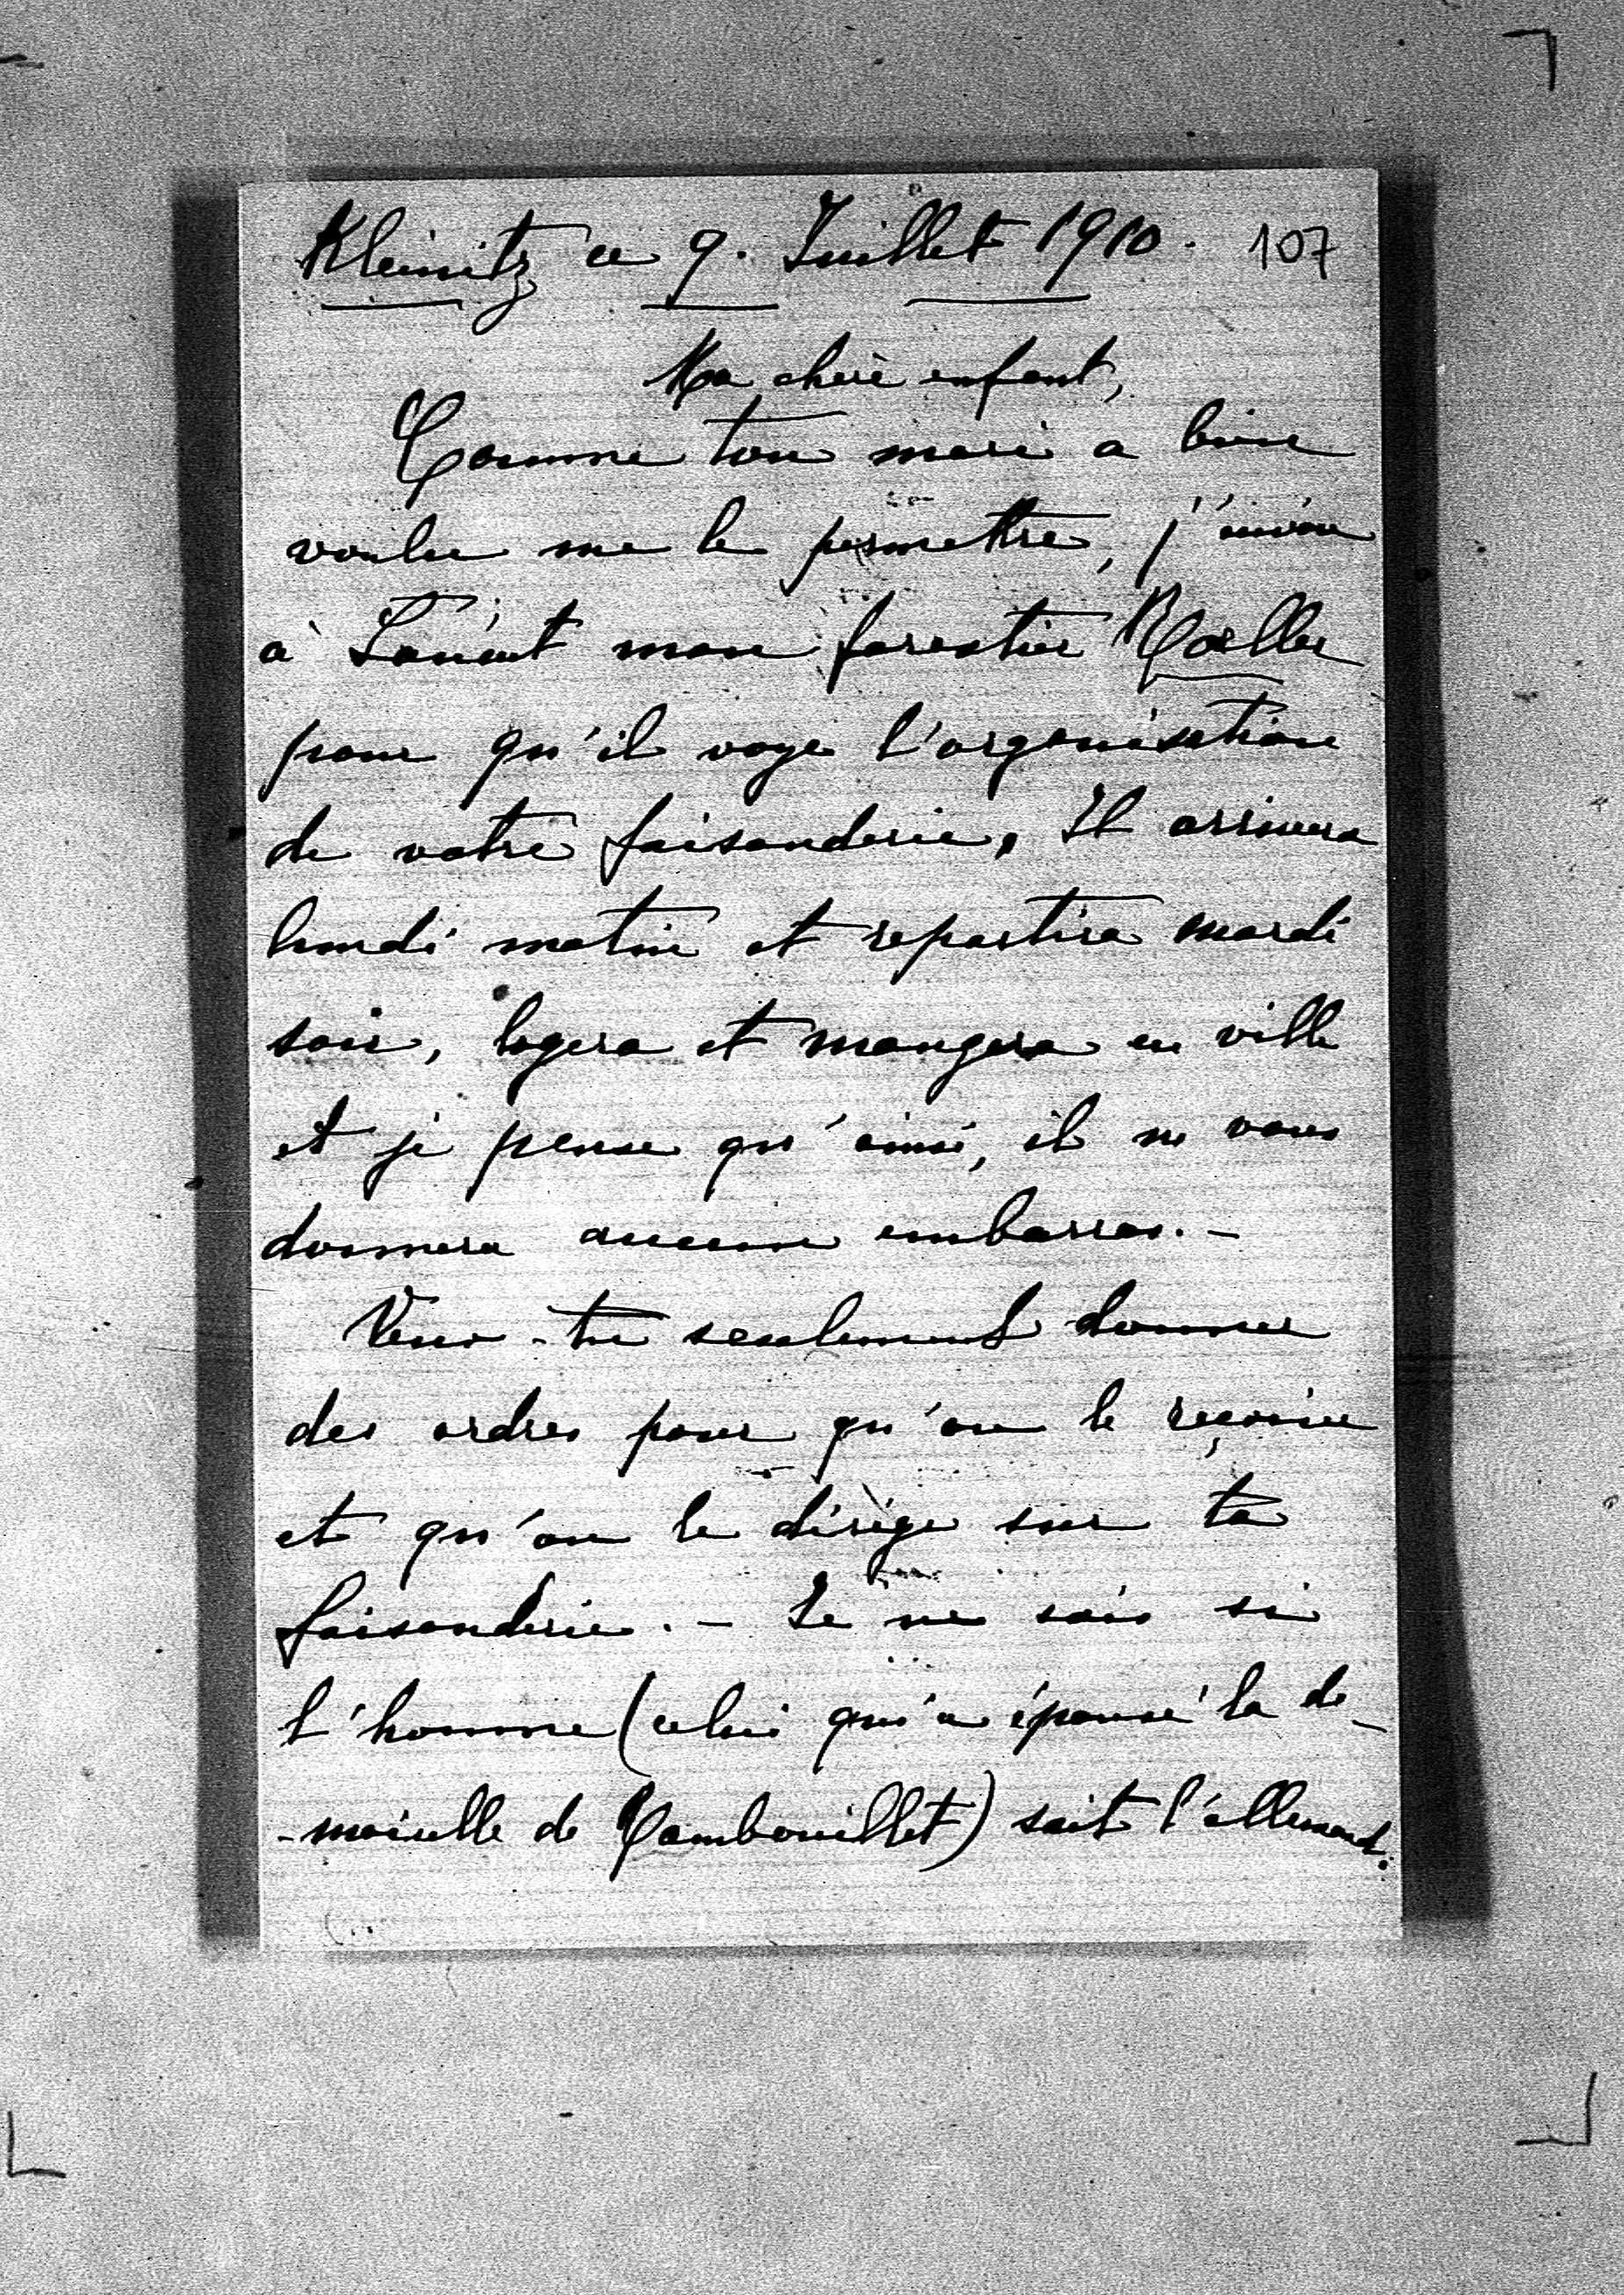 Kleinitz ce 9. Juillet 1910. 107
Ma chère enfant,
Comme ton mari a bien
voulu me le permettre, j'envoie
à Łańcut mon forestier
pour qu'il voye l'organisation
de votre faisanderie, Il arrivera
lundi matin et repartira mardi
soir, logera et mangera en ville
et je pense qu'ainsi, il ne vous
donnera aucun embarras. -
Veux-tu seulement donner
des ordres pour qu'on le reçoive
et qu'on le dirige sur ta
faisanderie. - Je ne sais si
l'homme (celui qui a épousé la de-
-moiselle de Rambouillet) sait l'allemand.